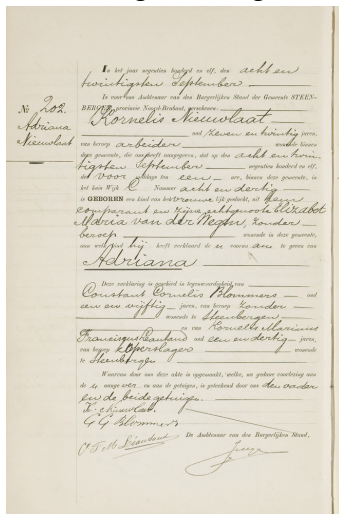 No 202.
Adriana
Nieuwlaat
In het jaar negentien honderd en elf, den acht en
twintigsten September
is voor ons Ambtenaar van den Burgerlijken Stand der Gemeente STEEN-
BERGEN, provincie Noord-Brabant, verschenen:
Kornelis Nieuwlaat
oud zeven en twintig jaren,
van beroep arbeider wonende binnen
deze gemeente, die ons heeft aangegeven, dat op den acht en twin-
tigsten September negentien honderd en elf,
des voor middags ten een ure, binnen deze gemeente, in
het huis Wijk C Nummer acht en dertig
is GEBOREN een kind van het vrouwelijk geslacht, uit hem
comparant en zijne echtgenoote Elizabet
Maria van der Wegen, zonder
beroep wonende in deze gemeente,
aan welk kind hij heeft verklaard de voornaam te geven van
Adriana
Deze verklaring is geschied in tegenwoordigheid van
Constant Cornelis Blommers oud
een en vijftig jaren, van beroep zonder
wonende te Steenbergen
en van Kornelis Marinus
Franciscus oud een en dertig jaren,
van beroep koperslager wonende
te Steenbergen
Waarvan door ons deze akte is opgemaakt, welke, na gedane voorlezing aan
de aangever en aan de getuigen, is geteekend door ons den vader
en de beide getuigen.
K. Nieuwlaat.
Blommers
De Ambtenaar van den Burgerlijken Stand,